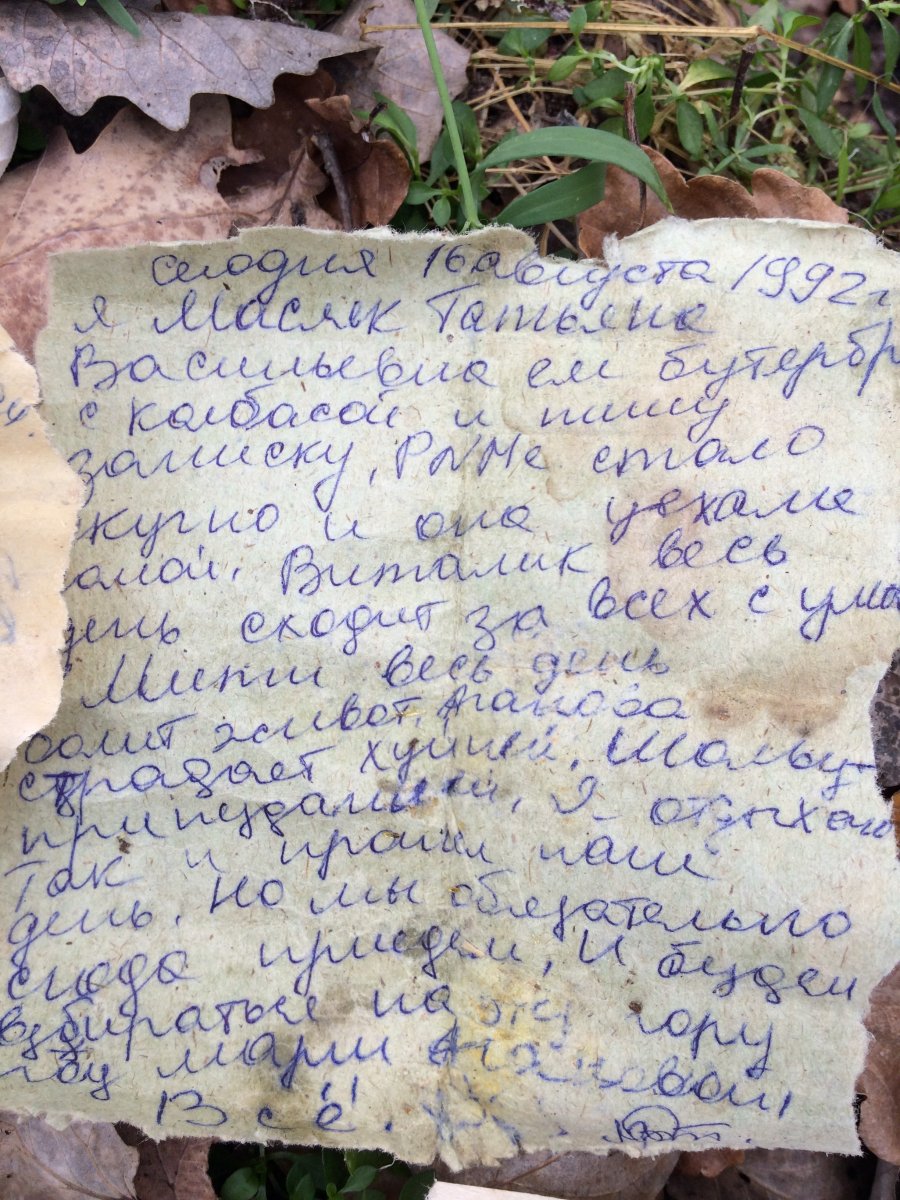 сегодня 16 августа 1992 г
я Масляк Татьяна
Васильевна ем бутербр
с колбасой и пишу
записку, стало
кучно и она уехала
омой. Виталик весь
день сходит за всех с ума
Мити весь день
болит живот. Агапова
страдает хуйней, Шольц
припиздами, я отдыхаю
Так и прошел наш
день. Но мы обязательно
сюда приедем, И будем
взбираться на эту гору
Мари Агаповой
Всё.